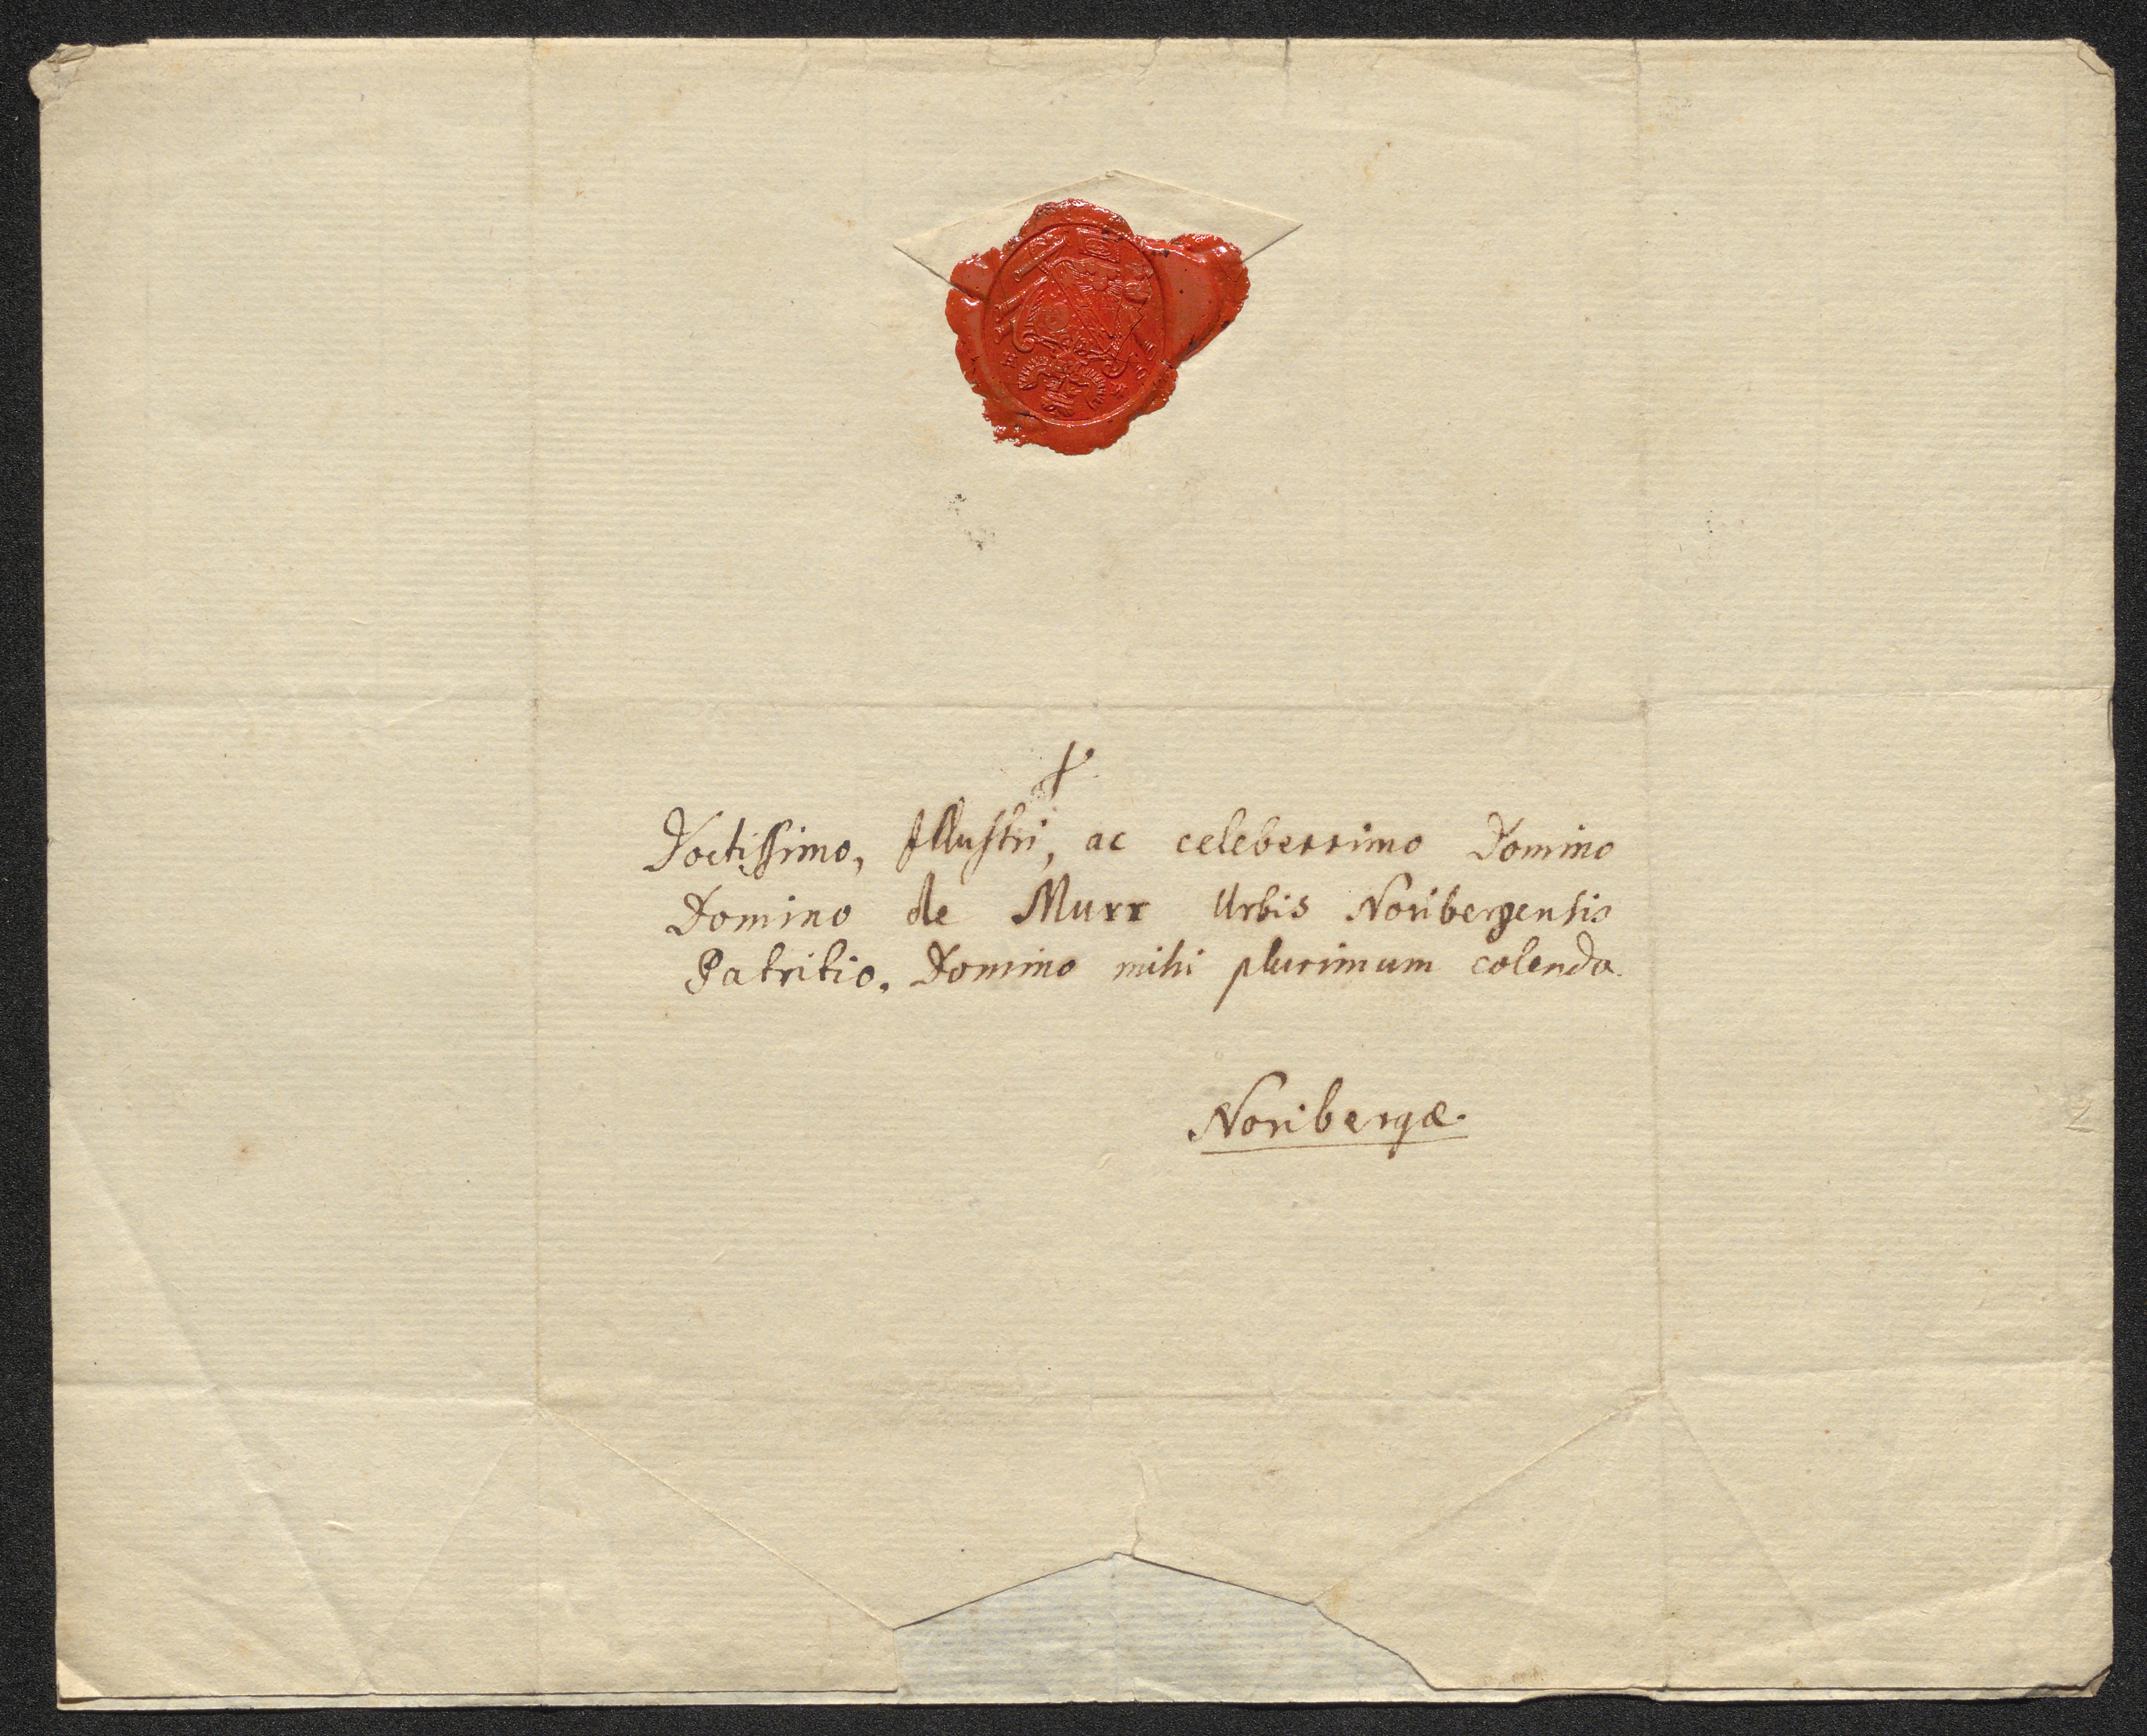 †
Doctissimo, Illustri, ac celeberrimo Domino
Domino de Murr Urbis Noribergensis
Patritio. Domino mihi plurimum colendo.
Noribergæ.